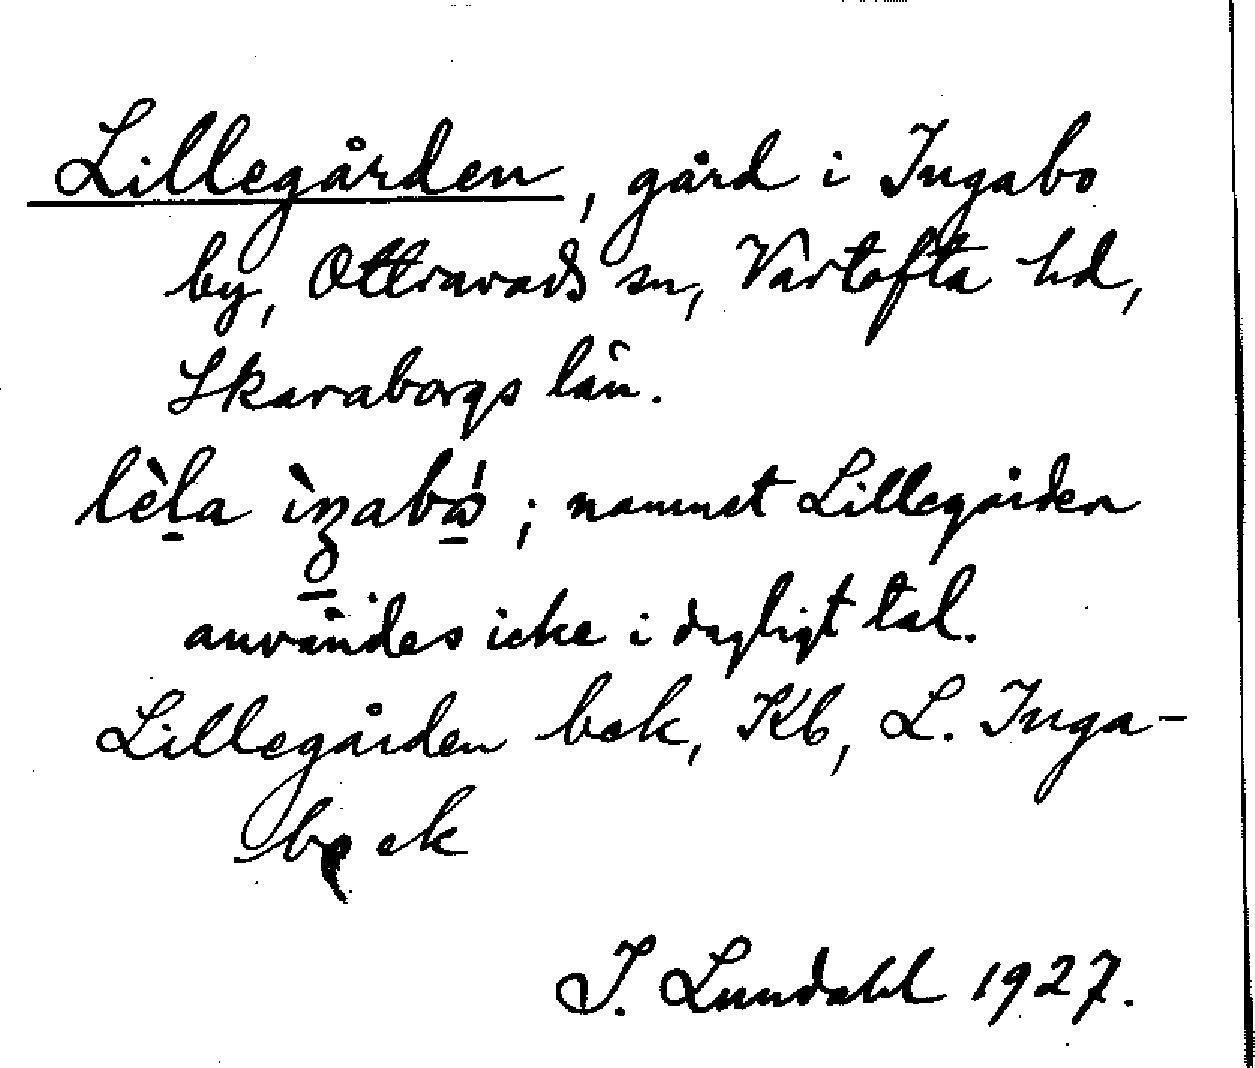 Lillegården, gård i Ingabo
by, Ottravads sn, Vartofta hd,
Skaraborgs län.
lèla ; namnet Lillegården
användes icke i dagligt tal.
Lillegården bek, Kb, L. Inga-
bo ek
I. Lundahl 1927.